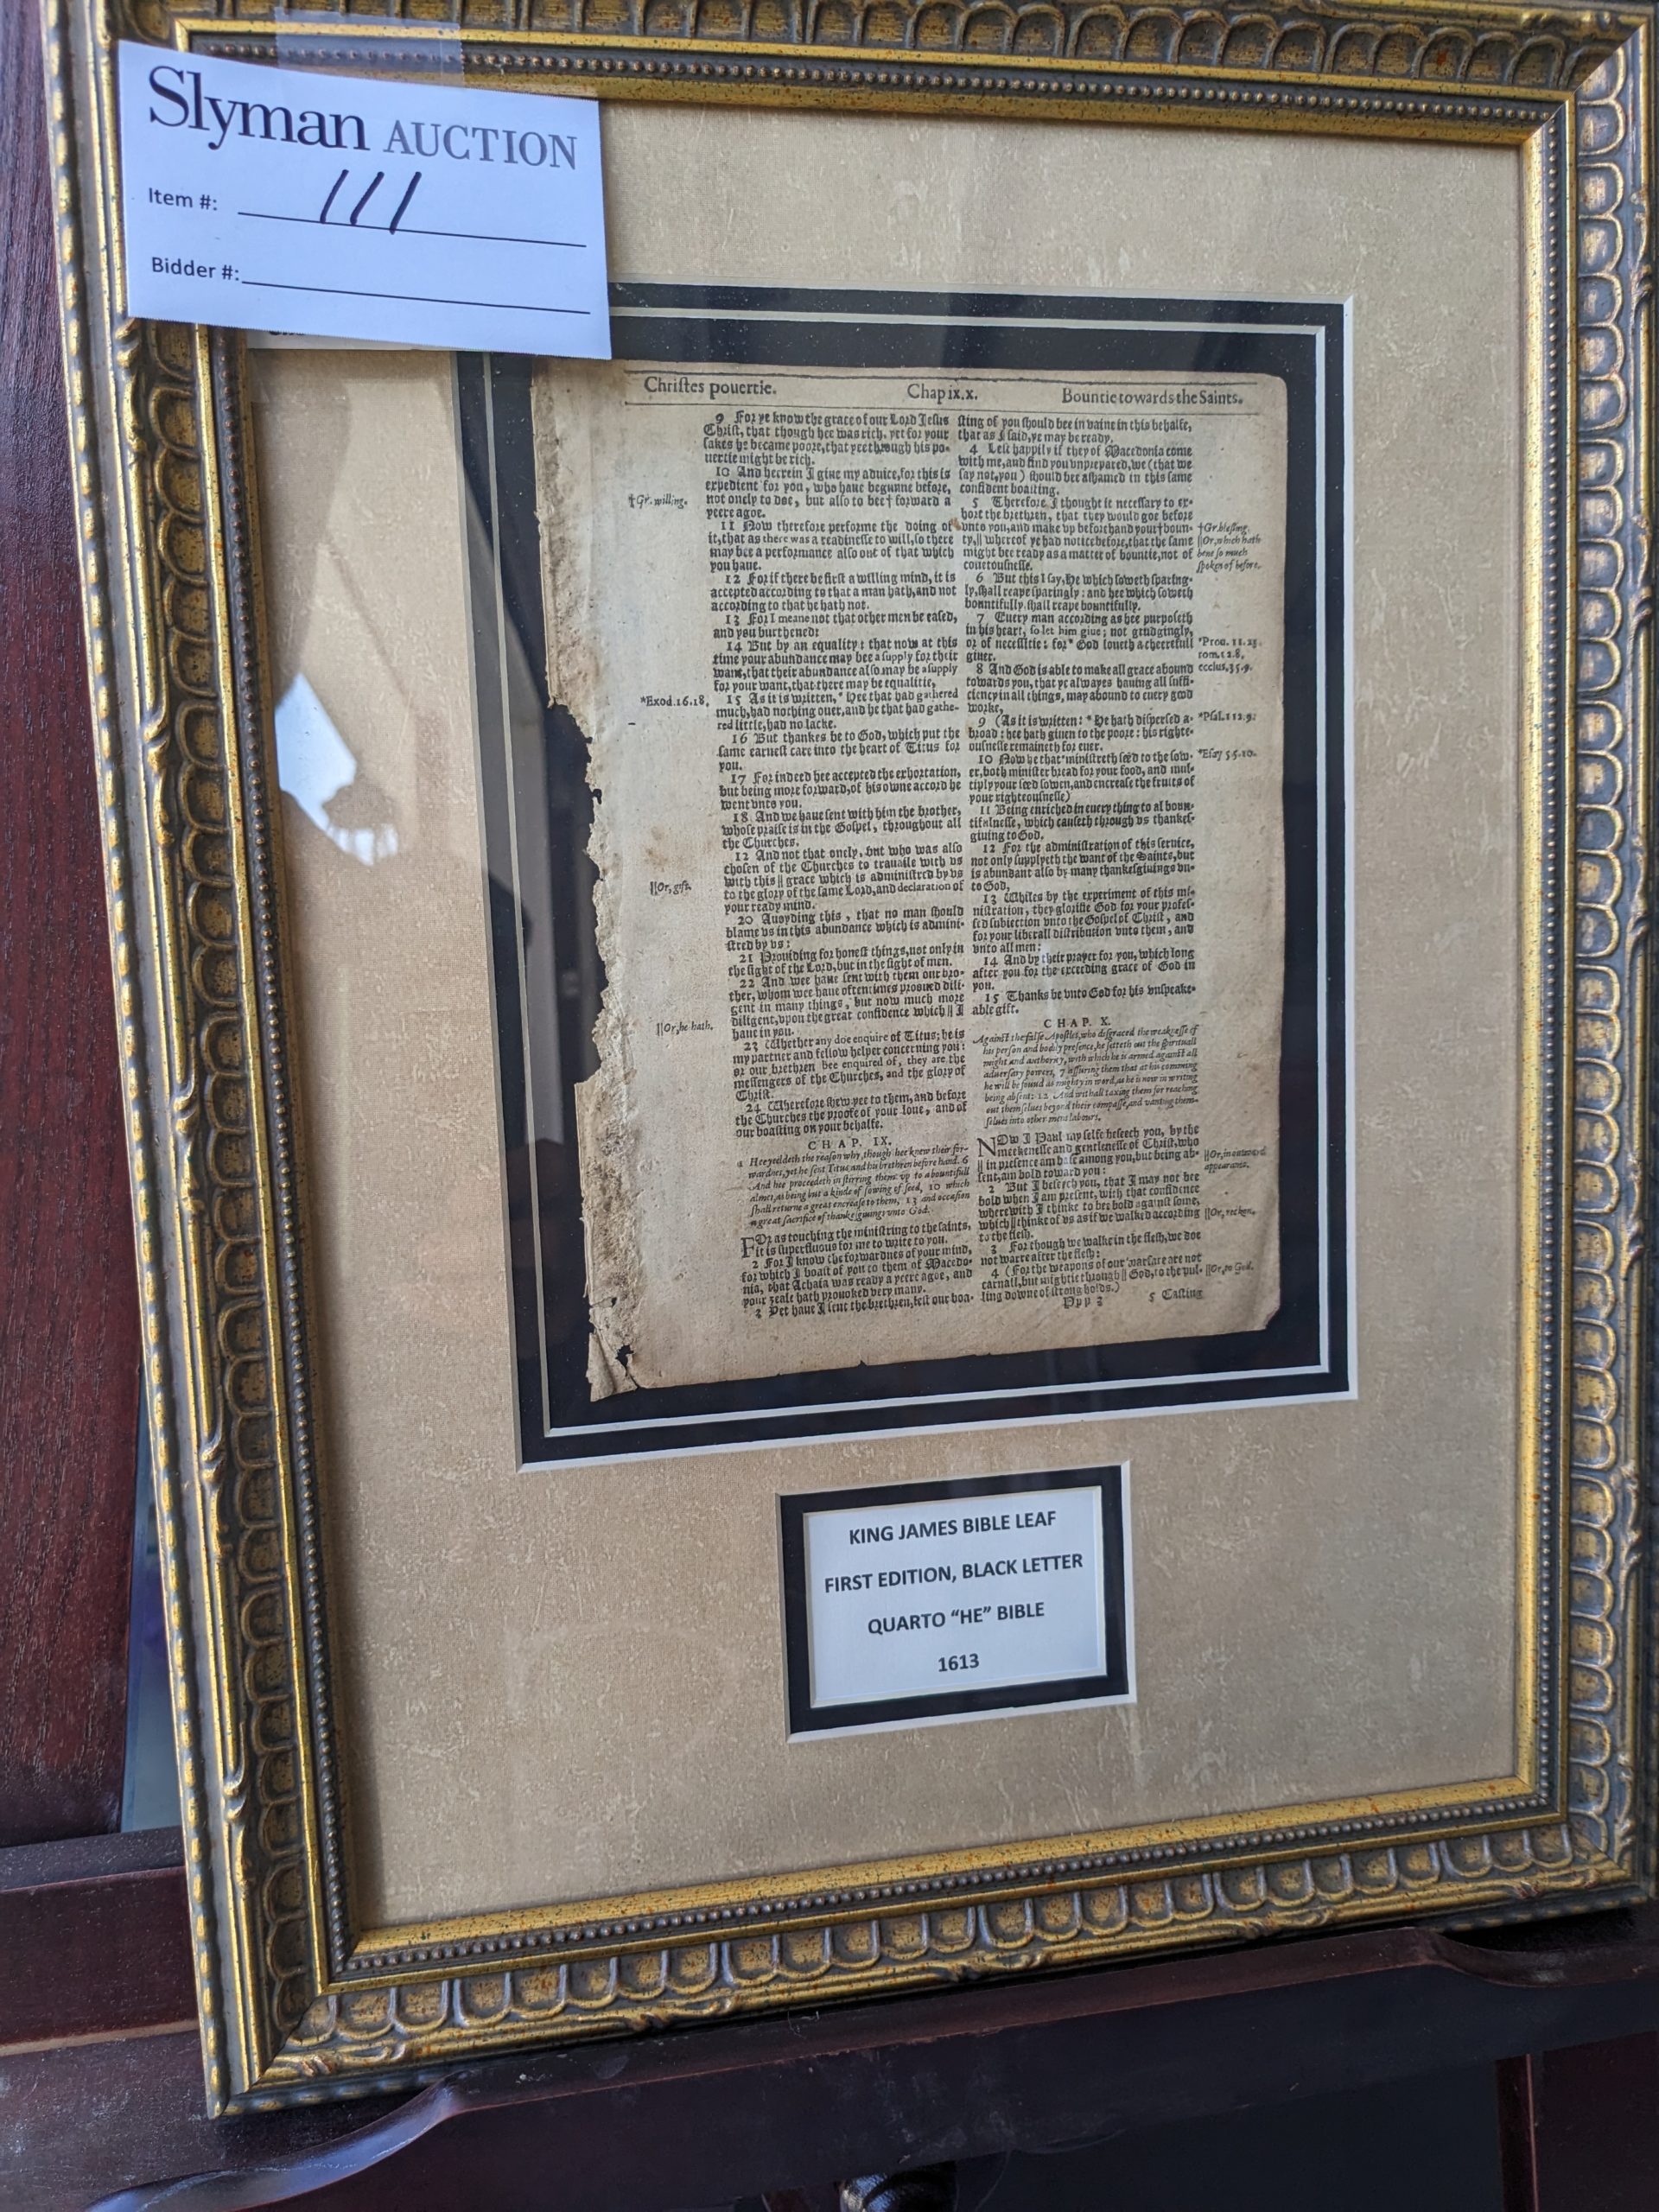 Slyman AUCTION
Item #: 111
Bidder #:
Christes pouertie.
Chap ix.x.
Bountie towards the Saints.
9 For ye know the grace of our Lord Jesus
Christ, that though hee was rich, yet for your
sakes he became poore, that yee through his po-
uertie might be rich.
10 And herein I giue my aduice, for this is
expedient for you, who haue begunne before,
not onely to doe, but also to bee † forward a
yeere agoe.
11 Now therefore performe the doing of
it, that as there was a readinesse to will, so there
may bee a performance also out of that which
you haue.
12 For if there be first a willing mind, it is
accepted according to that a man hath, and not
according to that he hath not.
13 For I meane not that other men be eased,
and you burthened:
14 But by an equality: that now at this
time your abundance may bee a supply for their
want, that their abundance also may be a supply
for your want, that there may be equalitie,
15 As it is written, * Hee that had gathered
much, had nothing ouer, and he that had gathe-
red little, had no lacke.
16 But thankes be to God, which put the
same earnest care into the heart of Titus for
you.
17 For indeed hee accepted the exhortation,
but being more forward, of his owne accord he
went vnto you.
18 And we haue sent with him the brother,
whose praise is in the Gospel, throughout all
the Churches.
12 And not that onely, but who was also
chosen of the Churches to trauaile with vs
with this || grace which is administred by vs
to the glory of the same Lord, and declaration of
your ready mind.
20 Auoyding this, that no man should
blame vs in this abundance which is admini-
stred by vs:
21 Prouiding for honest things, not only in
the sight of the Lord, but in the sight of men.
22 And wee haue sent with them our bro-
ther, whom wee haue oftentimes prooued dili-
gent in many things, but now much more
diligent, vpon the great confidence which || I
haue in you.
23 Whether any doe enquire of Titus; he is
my partner and fellow helper concerning you:
or our brethren bee enquired of, they are the
messengers of the Churches, and the glory of
Christ.
24 Wherefore shew yee to them, and before
the Churches the proofe of your loue, and of
our boasting on your behalfe.
CHAP. IX.
1 Hee yeeldeth the reason why, though hee knew their for-
wardnes, yet he sent Titus and his brethren before hand. 6
And hee proceedeth in stirring them vp to a bountifull
almes, as being but a kinde of sowing of seed, 10 which
shall returne a great encrease to them, 13 and occasion
a great sacrifice of thanksgiuings vnto God.
FOr as touching the ministring to the saints,
it is superfluous for me to write to you.
2 For I know the forwardnes of your mind,
for which I boast of you to them of Macedo-
nia, that Achaia was ready a yeere agoe, and
your zeale hath prouoked very many.
3 Yet haue I sent the brethren, lest our boa-
†Gr. willing.
*Exod.16.18.
||Or, gift.
||Or, he hath.
sting of you should bee in vaine in this behalfe,
that as I said, ye may be ready.
4 Lest happily if they of Macedonia come
with me, and find you vnprepared, we (that we
say not, you) should bee ashamed in this same
confident boasting.
5 Therefore I thought it necessary to ex-
hort the brethren, that they would goe before
vnto you, and make vp beforehand your † boun-
ty, || whereof ye had notice before, that the same
might bee ready as a matter of bountie, not of
couetousnesse.
6 But this I say, He which soweth sparing-
ly, shall reape sparingly: and hee which soweth
bountifully, shall reape bountifully.
7 Euery man according as hee purposeth
in his heart, so let him giue; not grudgingly,
or of necessitie: for * God loueth a cheerefull
giuer.
8 And God is able to make all grace abound
towards you, that ye alwayes hauing all suffi-
ciency in all things, may abound to euery good
worke,
9 (As it is written: * He hath dispersed a-
broad: hee hath giuen to the poore: his righte-
ousnesse remaineth for euer.
10 Now he that * ministreth seed to the sow-
er, both minister bread for your food, and mul-
tiply your seed sowen, and encrease the fruits of
your righteousnesse)
11 Being enriched in euery thing to al boun-
tifulnesse, which causeth through vs thankes-
giuing to God.
12 For the administration of this seruice,
not only supplyeth the want of the Saints, but
is abundant also by many thankesgiuings vn-
to God,
13 Whiles by the experiment of this mi-
nistration, they glorifie God for your profes-
sed subiection vnto the Gospel of Christ, and
for your liberall distribution vnto them, and
vnto all men:
14 And by their prayer for you, which long
after you for the exceeding grace of God in
you.
15 Thanks be vnto God for his vnspeake-
able gift.
CHAP. X.
Against the false Apostles, who disgraced the weaknesse of
his person and bodily presence, he setteth out the spirituall
might and authority, with which he is armed against all
aduersary powers, 7 assuring them that at his comming
he will be found as mighty in word, as he is now in writing
being absent: 12 And withall taxing them for reaching
out themselues beyond their compasse, and vanting them-
selues into other mens labours.
NOw I Paul my selfe beseech you, by the
meekenesse and gentlenesse of Christ, who
|| in presence am base among you, but being ab-
sent, am bold toward you:
2 But I beseech you, that I may not bee
bold when I am present, with that confidence
wherewith I thinke to bee bold against some,
which || thinke of vs as if we walked according
to the flesh.
3 For though we walke in the flesh, we doe
not warre after the flesh:
4 (For the weapons of our warfare are not
carnall, but mightie through || God, to the pul-
ling downe of strong holds.)
Ppp 3
5 Casting
†Gr. blessing.
||Or, which hath
bene so much
spoken of before.
*Prou. 11.25.
rom.12.8.
ecclus.35.9.
*Psal.112.9.
*Esay 55.10.
||Or, in outward
appearance.
||Or, reckon.
||Or, to God.
KING JAMES BIBLE LEAF
FIRST EDITION, BLACK LETTER
QUARTO “HE” BIBLE
1613